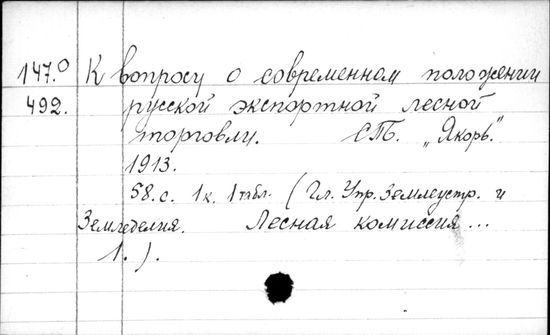 147.0 К вопросу о современном положении
492. русской экспортной лесной
торговли. СПб. „Якорь."
1913.
58.с. 1к. 1табл. (Гл. Упр. Землеустр. и
Земледелия. Лесная комиссия...
1.).